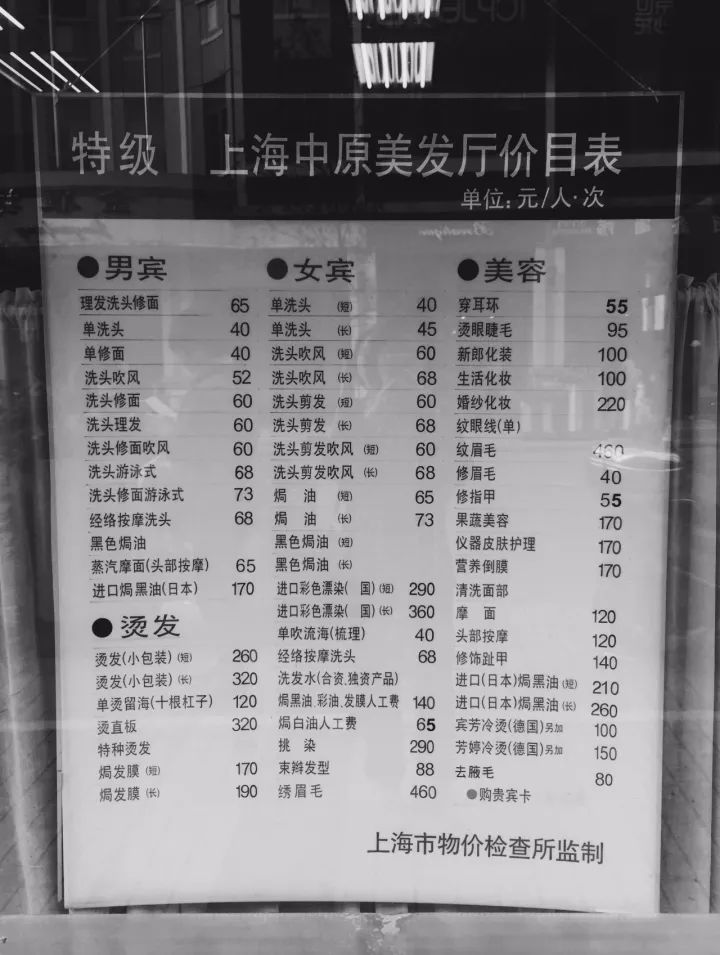 特级 上海中原美发厅价目表
单位:元/人·次
●男宾
理发洗头修面 65
单洗头 40
单修面 40
洗头吹风 52
洗头修面 60
洗头理发 60
洗头修面吹风 60
洗头游泳式 68
洗头修面游泳式 73
经络按摩洗头 68
黑色焗油
蒸汽摩面(头部按摩) 65
进口焗黑油(日本) 170
●烫发
烫发(小包装)(短) 260
烫发(小包装)(长) 320
单烫留海(十根杠子) 120
烫直板 320
特种烫发
焗发膜(短) 170
焗发膜(长) 190
●女宾
单洗头(短) 40
单洗头(长) 45
洗头吹风(短) 60
洗头吹风(长) 68
洗头剪发(短) 60
洗头剪发(长) 68
洗头剪发吹风(短) 60
洗头剪发吹风(长) 68
焗 油(短) 65
焗 油(长) 73
黑色焗油(短)
黑色焗油(长)
进口彩色漂染( 国)(短) 290
进口彩色漂染( 国)(长) 360
单吹流海(梳理) 40
经络按摩洗头 68
洗发水(合资,独资产品)
焗黑油,彩油,发膜人工费 140
焗白油人工费 65
挑 染 290
束辫发型 88
绣眉毛 460
●美容
穿耳环 55
烫眼睫毛 95
新郎化装 100
生活化妆 100
婚纱化妆 220
纹眼线(单)
纹眉毛 460
修眉毛 40
修指甲 55
果蔬美容 170
仪器皮肤护理 170
营养倒膜 170
清洗面部
摩 面 120
头部按摩 120
修饰趾甲 140
进口(日本)焗黑油(短) 210
进口(日本)焗黑油(长) 260
宾芳冷烫(德国)另加 100
芳婷冷烫(德国)另加 150
去腋毛 80
●购贵宾卡
上海市物价检查所监制